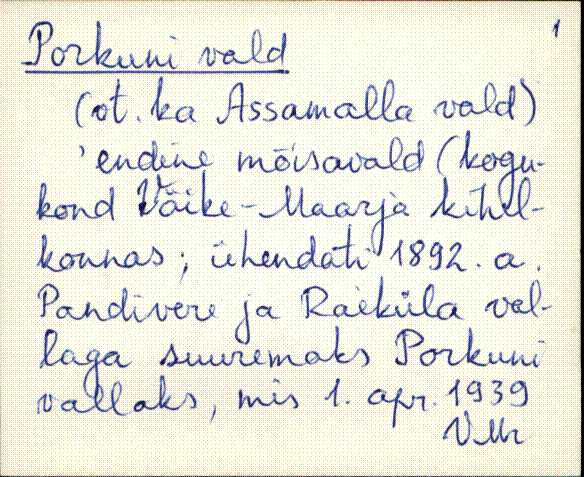 1
Porkuni vald
(vt. ka Assamalla vald)
'endine mõisavald (kogu-
kond Väike-Maarja kihel-
konnas; ühendati 1892. a.
Pandivere ja Raeküla val-
laga suuremaks Porkuni
vallaks, mis 1. apr. 1939
VMr